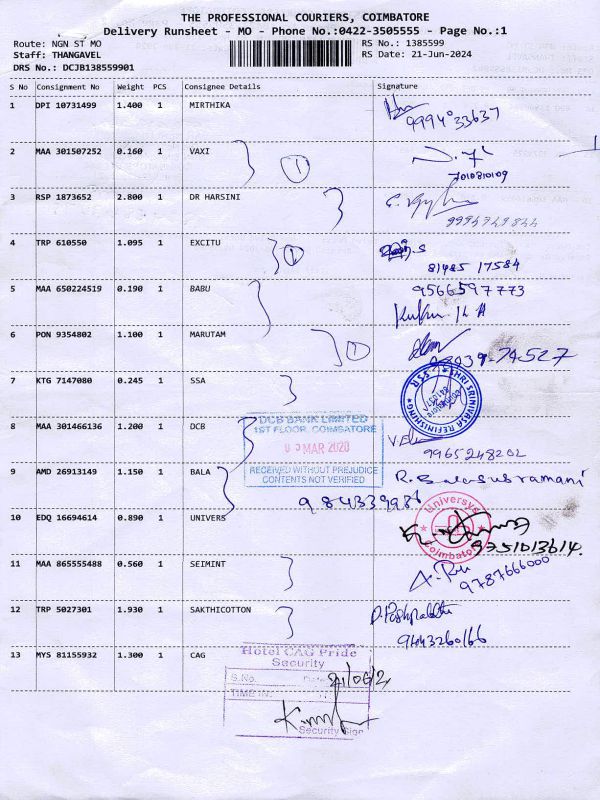 THE PROFESSIONAL COURIERS, COIMBATORE
Delivery Runsheet - MO - Phone No.:0422-3505555 - Page No.:1
Route: NGN ST MO
RS No.: 1385599
Staff: THANGAVEL
RS Date: 21-Jun-2024
DRS No.: DCJB138559901
S No Consignment No Weight PCS Consignee Details Signature
1 DPI 10731499 1.400 1 MIRTHIKA
9994033637
2 MAA 301507252 0.160 1 VAXI
1
7010810109
3 RSP 1873652 2.800 1 DR HARSINI
4 TRP 610550 1.095 1 EXCITU
1
81485 17584
5 MAA 650224519 0.190 1 BABU
9566597773
6 PON 9354802 1.100 1 MARUTAM
1
7 KTG 7147080 0.245 1 SSA
SHRI SRINIVASA REFINISHING
8 MAA 301466136 1.200 1 DCB
DCB BANK LIMITED
1ST FLOOR, COIMBATORE
MAR 2020
RECEIVED WITHOUT PREJUDICE
CONTENTS NOT VERIFIED
9965248202
9 AMD 26913149 1.150 1 BALA
R. Balasubramani
10 EDQ 16694614 0.890 1 UNIVERS
Universys
Coimbatore
9751013614.
11 MAA 865555488 0.560 1 SEIMINT
9787666000
12 TRP 5027301 1.930 1 SAKTHICOTTON
9443260166
13 MYS 81155932 1.300 1 CAG
Hotel CAG Pride
Security
S.No. Date
21/06/24
TIME IN:
Security Sign